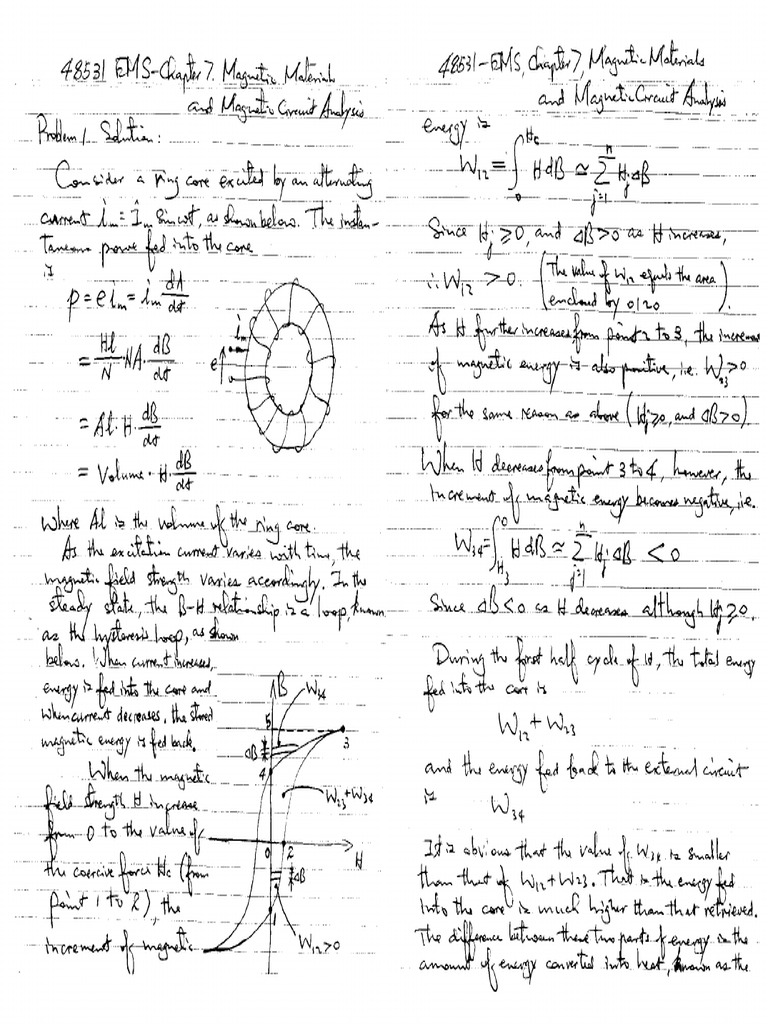 48531 EMS-Chapter 7. Magnetic Materials
and Magnetic Circuit Analysis
Problem 1 Solution:
Consider a ring core excited by an alternating
current im = Im Sinωt, as shown below. The instan-
taneous power fed into the core
is
p = e im = im dλ/dt
= Hl/N · NA · dB/dt
= Al · H · dB/dt
= Volume · H · dB/dt
im
e
Where Al is the volume of the ring core.
As the excitation current varies with time, the
magnetic field strength varies accordingly. In the
steady state, the B-H relationship is a loop, known
as the hysteresis loop, as shown
below. When current increases,
energy is fed into the core and
when current decreases, the stored
magnetic energy is fed back.
When the magnetic
field strength H increase
from 0 to the value of
the coercive force Hc (from
point 1 to 2), the
increment of magnetic
B
W34
5
3
ΔB
4
W23+W34
0
2
H
ΔB
1
W12>0
48531-EMS, Chapter 7, Magnetic Materials
and Magnetic Circuit Analysis
energy is
W12 = ∫0^Hc HdB ≃ Σ_{j=1}^{n} Hj ΔB
Since Hj ≥ 0, and ΔB > 0 as H increases,
∴ W12 > 0. (The value of W12 equals the area
enclosed by 0120).
As H further increases from point 2 to 3, the increment
of magnetic energy is also positive, i.e. W23 > 0
for the same reason as above (Hj ≥ 0, and ΔB > 0).
When H decreases from point 3 to 4, however, the
increment of magnetic energy becomes negative, i.e.
W34 = ∫H3^0 HdB ≃ Σ_{j=1}^{n} Hj ΔB < 0
Since ΔB < 0 as H decreases although Hj ≥ 0.
During the first half cycle of H, the total energy
fed into the core is
W12 + W23
and the energy fed back to the external circuit
is W34
It is obvious that the value of W34 is smaller
than that of W12 + W23. That is the energy fed
into the core is much higher than that retrieved.
The difference between these two parts of energy is the
amount of energy converted into heat, known as the